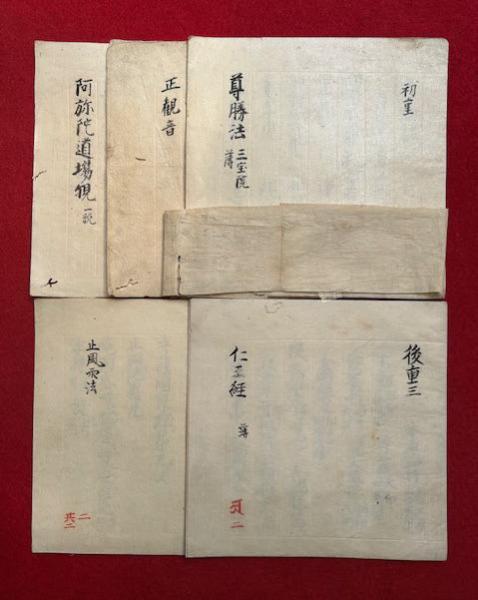 初重
尊勝法 三宝院
薄
正観音
阿弥陀道場観 一説
後重三
仁王経 薄
二
止風雨法
二
共二